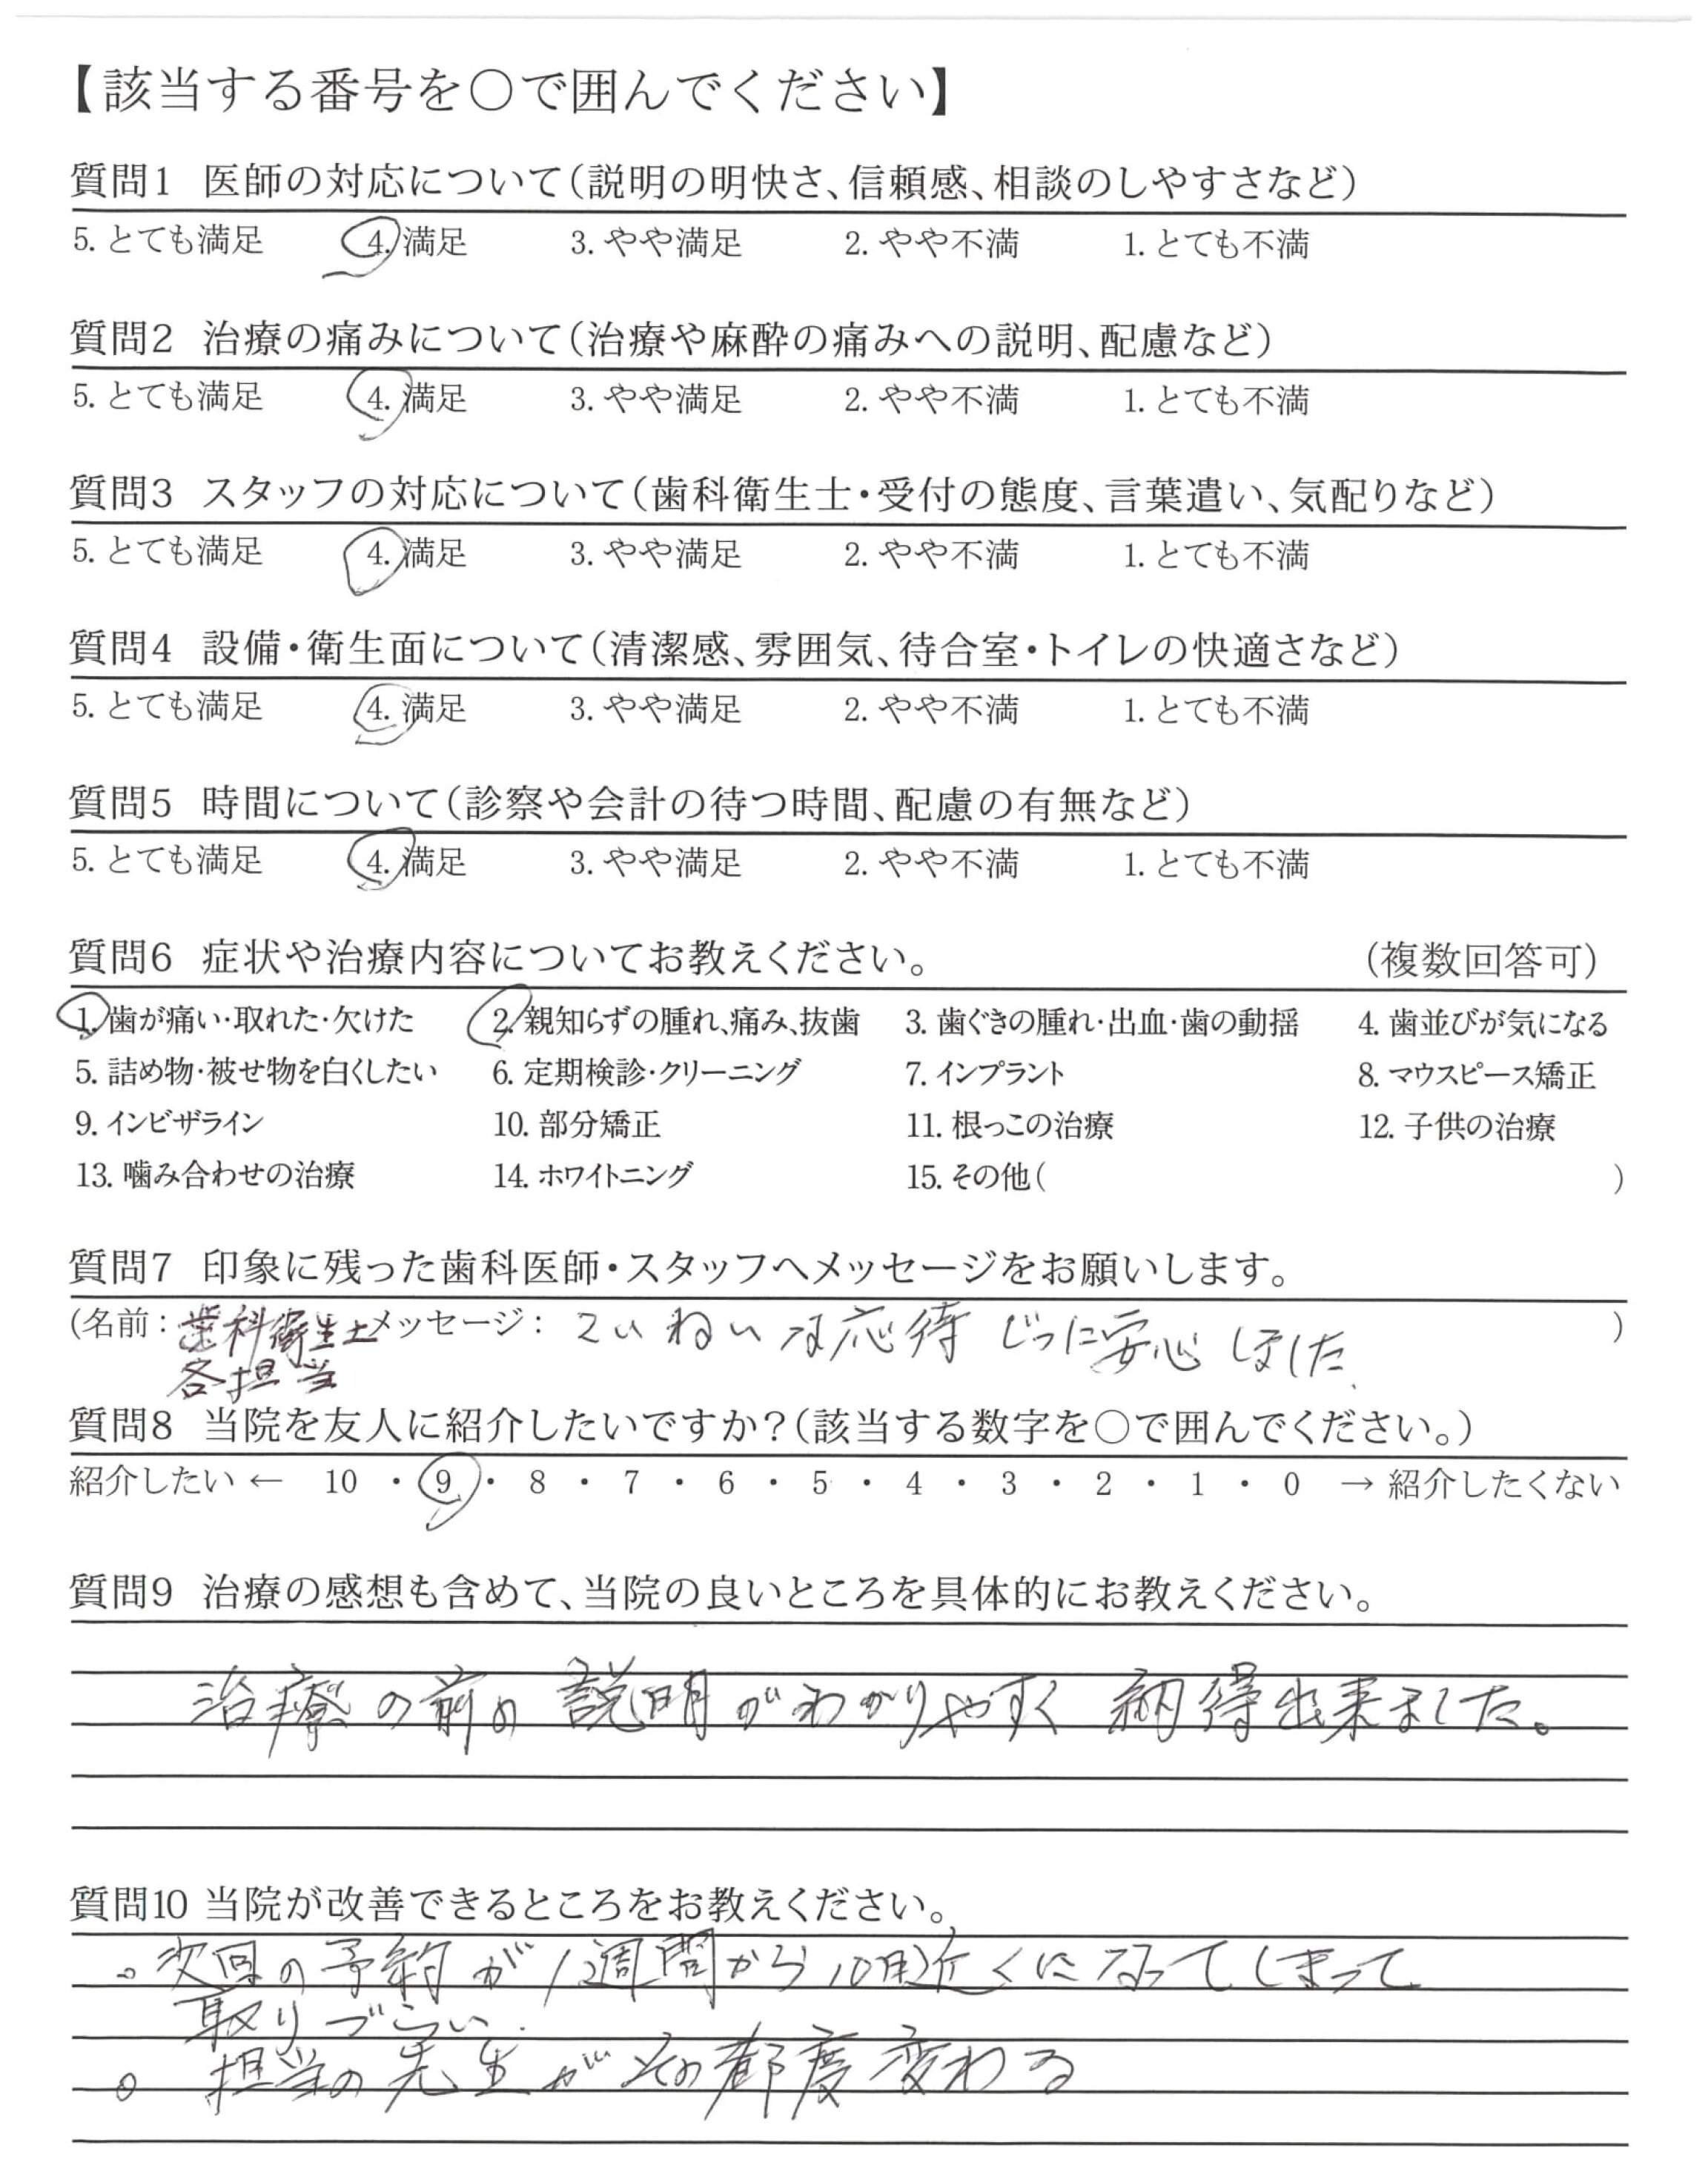 【該当する番号を〇で囲んでください】
質問1 医師の対応について(説明の明快さ、信頼感、相談のしやすさなど)
5. とても満足 4. 満足 3. やや満足 2. やや不満 1. とても不満
質問2 治療の痛みについて(治療や麻酔の痛みへの説明、配慮など)
5. とても満足 4. 満足 3. やや満足 2. やや不満 1. とても不満
質問3 スタッフの対応について(歯科衛生士・受付の態度、言葉遣い、気配りなど)
5. とても満足 4. 満足 3. やや満足 2. やや不満 1. とても不満
質問4 設備・衛生面について(清潔感、雰囲気、待合室・トイレの快適さなど)
5. とても満足 4. 満足 3. やや満足 2. やや不満 1. とても不満
質問5 時間について(診察や会計の待つ時間、配慮の有無など)
5. とても満足 4. 満足 3. やや満足 2. やや不満 1. とても不満
質問6 症状や治療内容についてお教えください。 (複数回答可)
1. 歯が痛い・取れた・欠けた 2. 親知らずの腫れ、痛み、抜歯 3. 歯ぐきの腫れ・出血・歯の動揺 4. 歯並びが気になる
5. 詰め物・被せ物を白くしたい 6. 定期検診・クリーニング 7. インプラント 8. マウスピース矯正
9. インビザライン 10. 部分矯正 11. 根っこの治療 12. 子供の治療
13. 噛み合わせの治療 14. ホワイトニング 15. その他( )
質問7 印象に残った歯科医師・スタッフへメッセージをお願いします。
(名前: 歯科衛生士 メッセージ: ていねいな応待 じつに安心しました. )
各担当
質問8 当院を友人に紹介したいですか?(該当する数字を〇で囲んでください。)
紹介したい ← 10 ・ 9 ・ 8 ・ 7 ・ 6 ・ 5 ・ 4 ・ 3 ・ 2 ・ 1 ・ 0 → 紹介したくない
質問9 治療の感想も含めて、当院の良いところを具体的にお教えください。
治療の前の説明がわかりやすく 納得出来ました。
質問10 当院が改善できるところをお教えください。
。次回の予約が1週間から10日近くになってしまって
取りづらい.
。担当の先生がその都度変わる